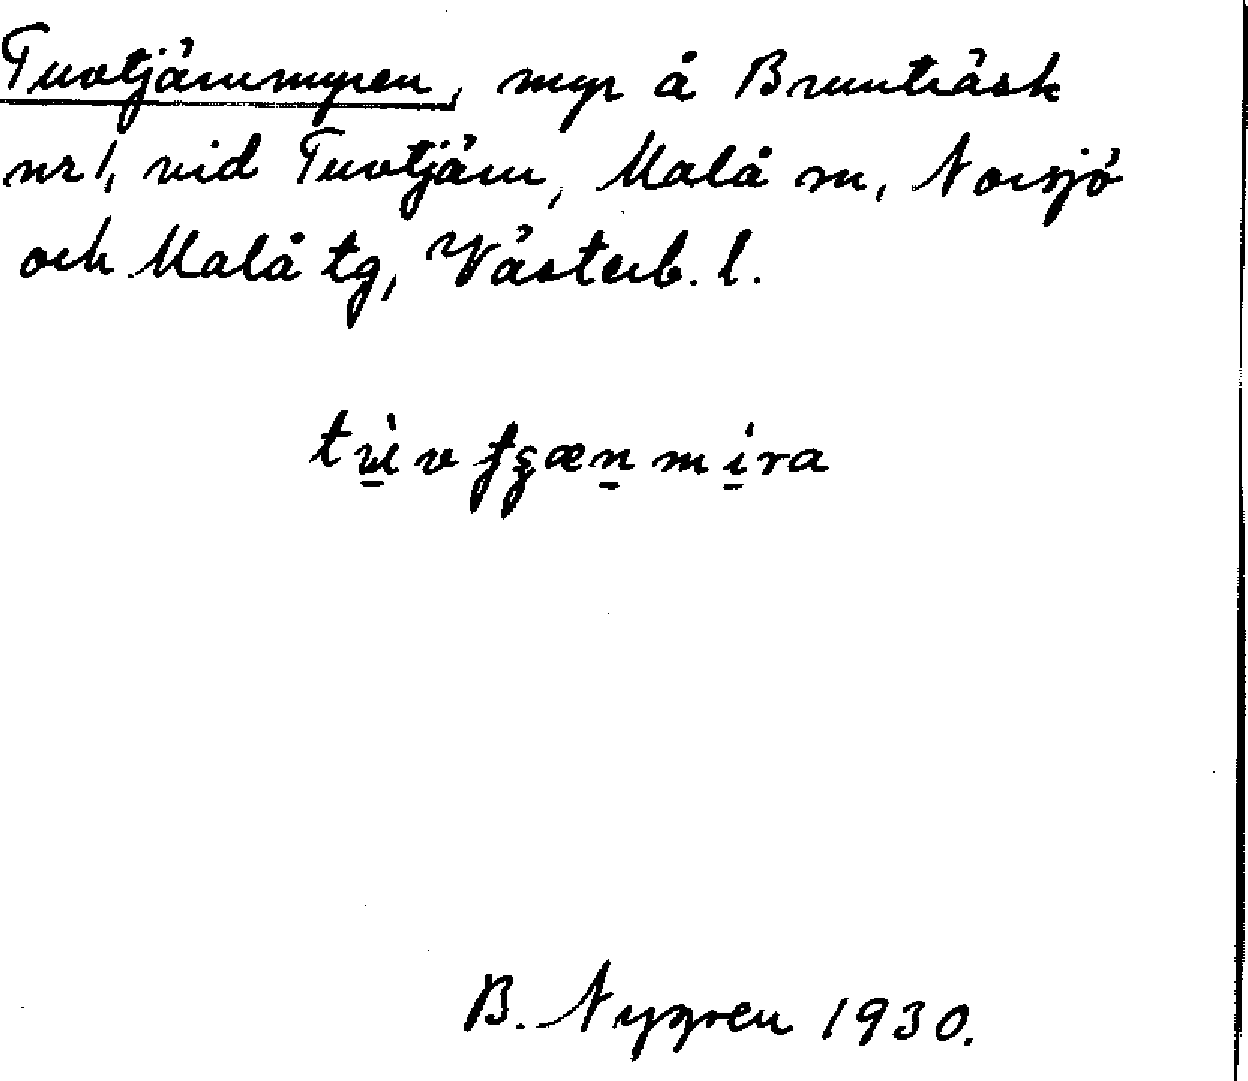 Tuvtjärnmyren, myr å Brunträsk
nr 1, vid Tuvtjärn, Malå sn, Norsjö
och Malå tg, Västerb. l.
B. Nygren 1930.